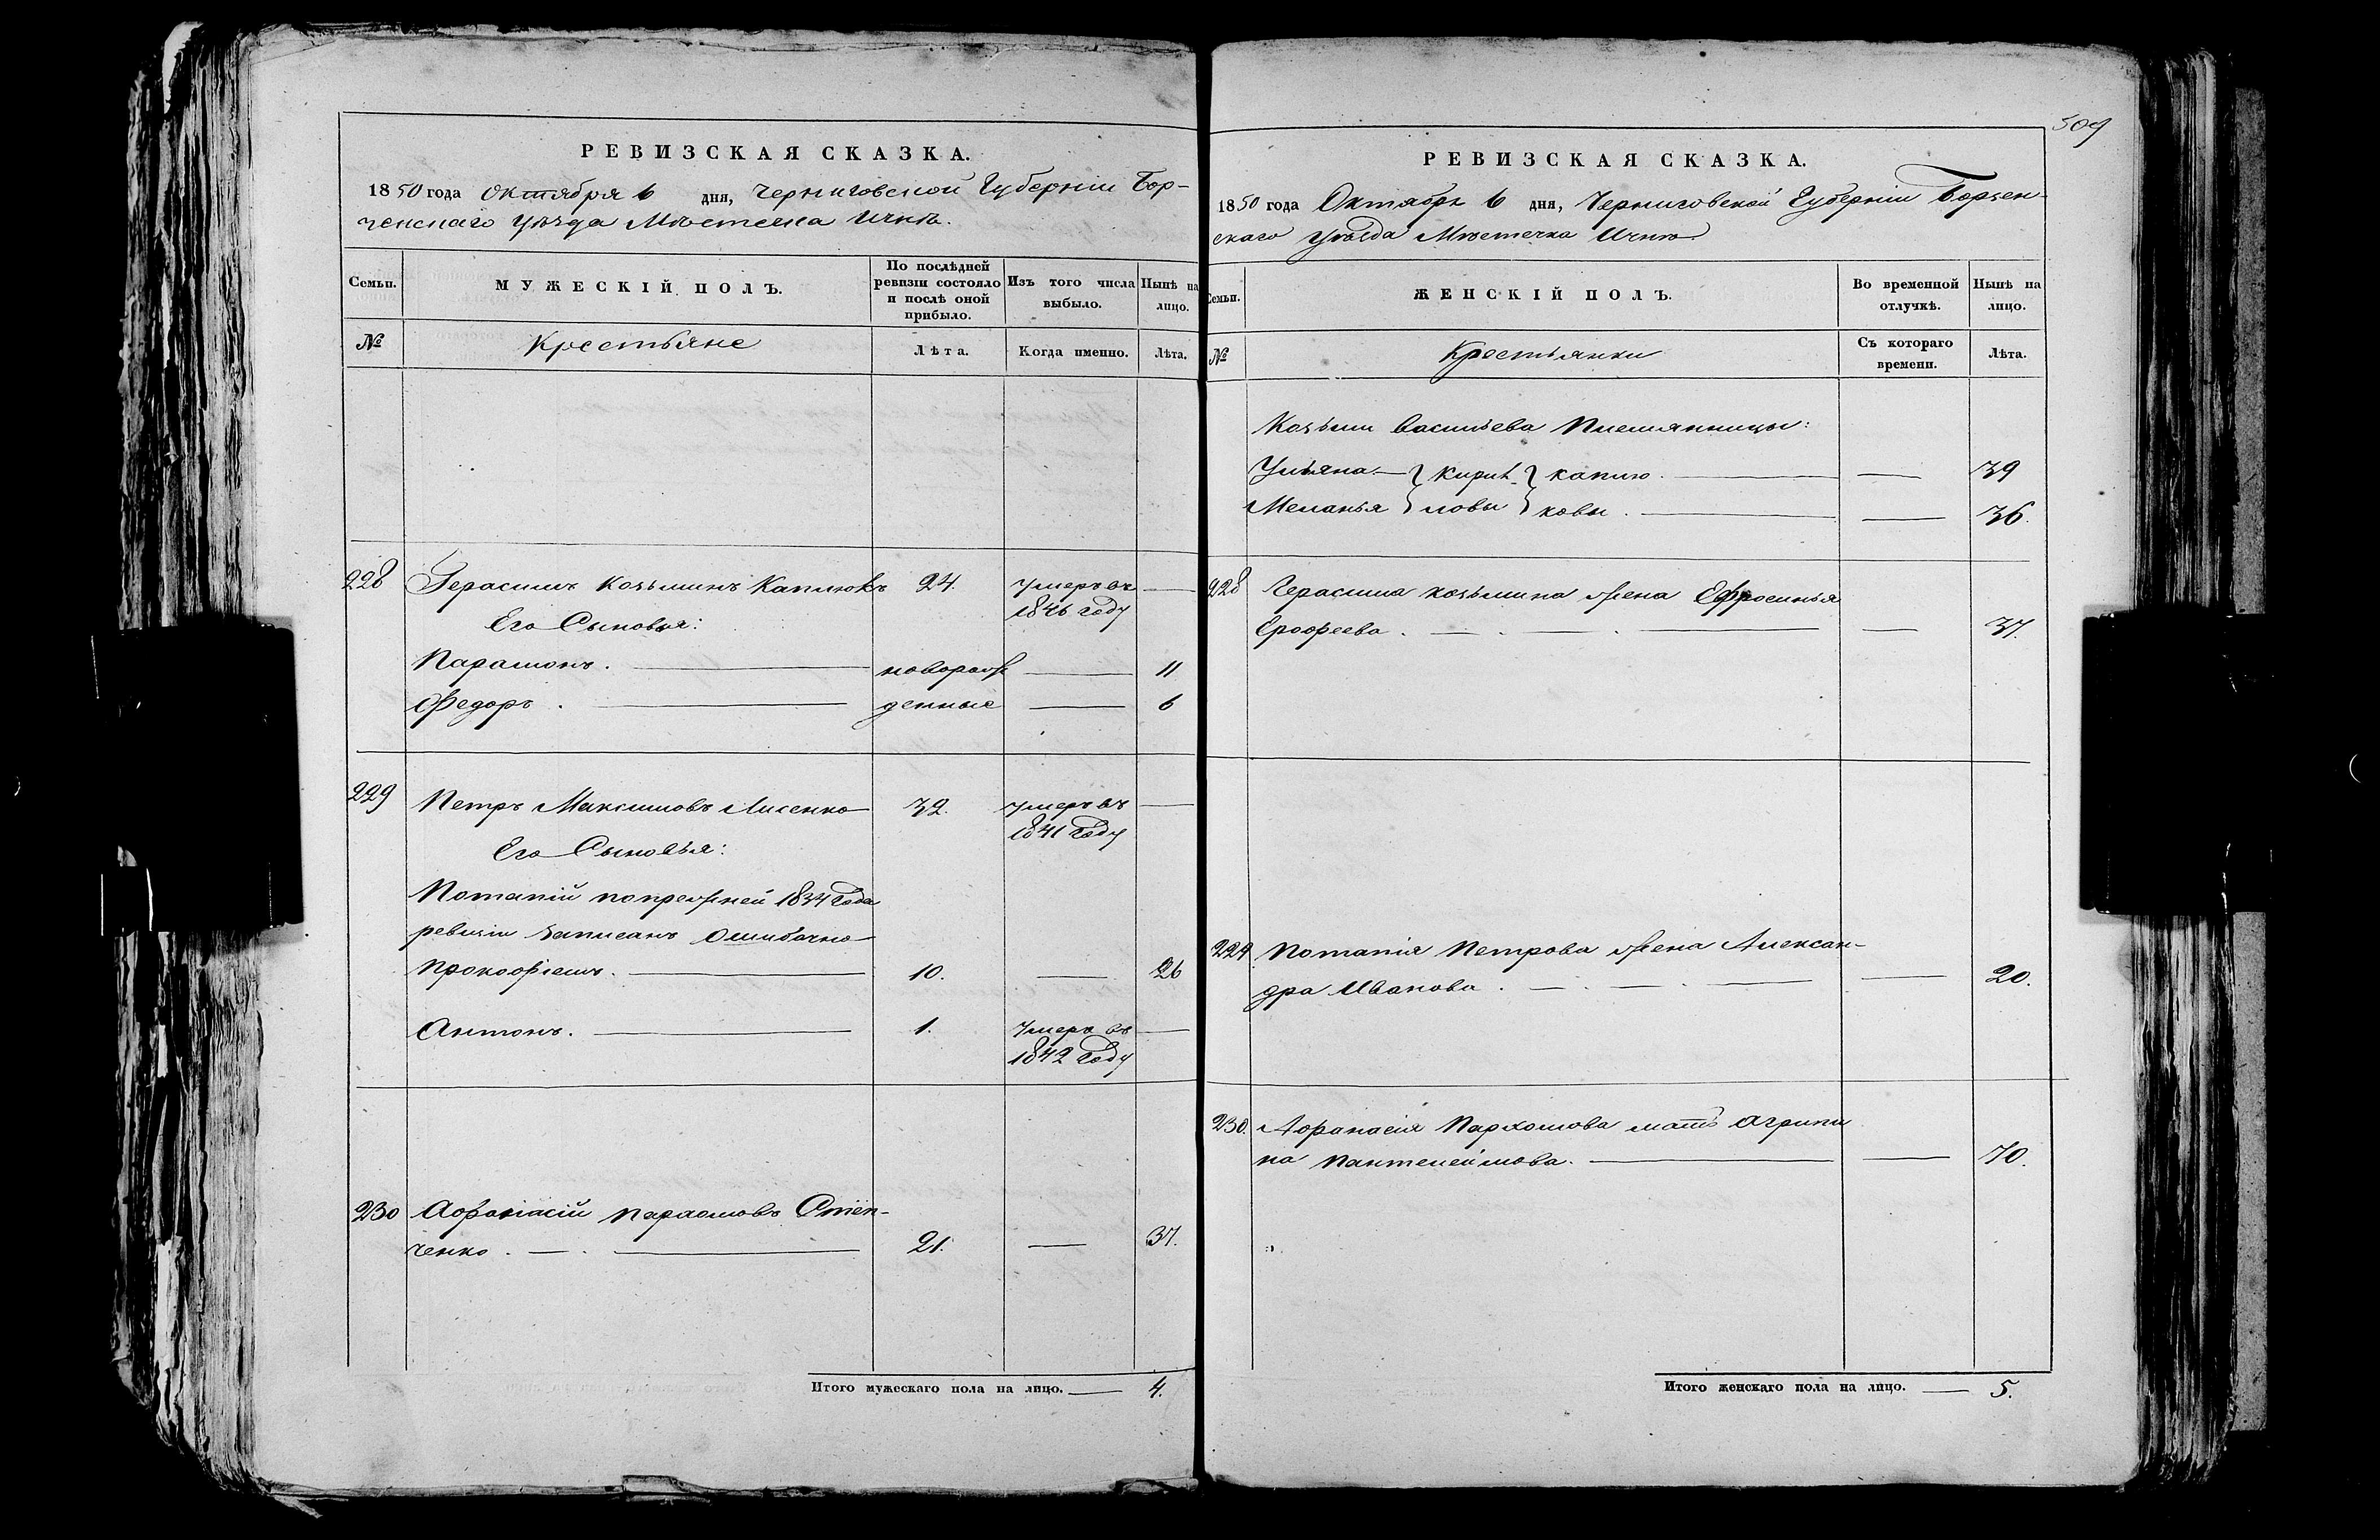 РЕВИЗСКАЯ СКАЗКА.
1850 года Октября 6 дня, Черниговской Губерніи Бор-
ченскаго Уѣзда Мѣстечка Ични.
Семьи. МУЖЕСКІЙ ПОЛЪ. По послѣдней ревизіи состояло и послѣ оной прибыло. Изъ того числа выбыло. Нынѣ на лицо.
№ Крестьяне Лѣта. Когда именно. Лѣта.
228 Герасимъ Козьминъ Каплюкъ 24. умеръ въ —
1846 году
Его Сыновья:
Парамонъ. — новорож — 11
Федоръ. — денные — 6
229 Петръ Максимовъ Лисенко 32. умеръ въ —
1841 году
Его Сыновья:
Потапій попрежней 1834 года
ревизіи записанъ ошибочно
Прокофіемъ. — 10. — 26
Антонъ. — 1. Умеръ въ —
1842 году
230 Афонасій Пархомовъ Степ-
ченко. — 21. — 37.
Итого мужескаго пола на лицо. — 4.
509
РЕВИЗСКАЯ СКАЗКА.
1850 года Октября 6 дня, Черниговской Губерніи Борзен-
скаго Уѣзда Мѣстечка Ични.
Семьи. ЖЕНСКІЙ ПОЛЪ. Во временной отлучкѣ. Нынѣ на лицо.
№ Крестьянки Съ котораго времени. Лѣта.
Козьмы Васильева Племянницы:
Ульяна — } Кирил- } каплю — — 39
Меланья } ловы } ковы. — — 36.
228 Герасима Козьмина жена Ефросинья
Ерофеева. — — — 37.
229 Потапія Петрова жена Алексан-
дра Иванова. — — — 20.
230. Афанасія Пархомова мать Агрипи
на Пантелеймова. — — 70.
Итого женскаго пола на лицо. — 5.